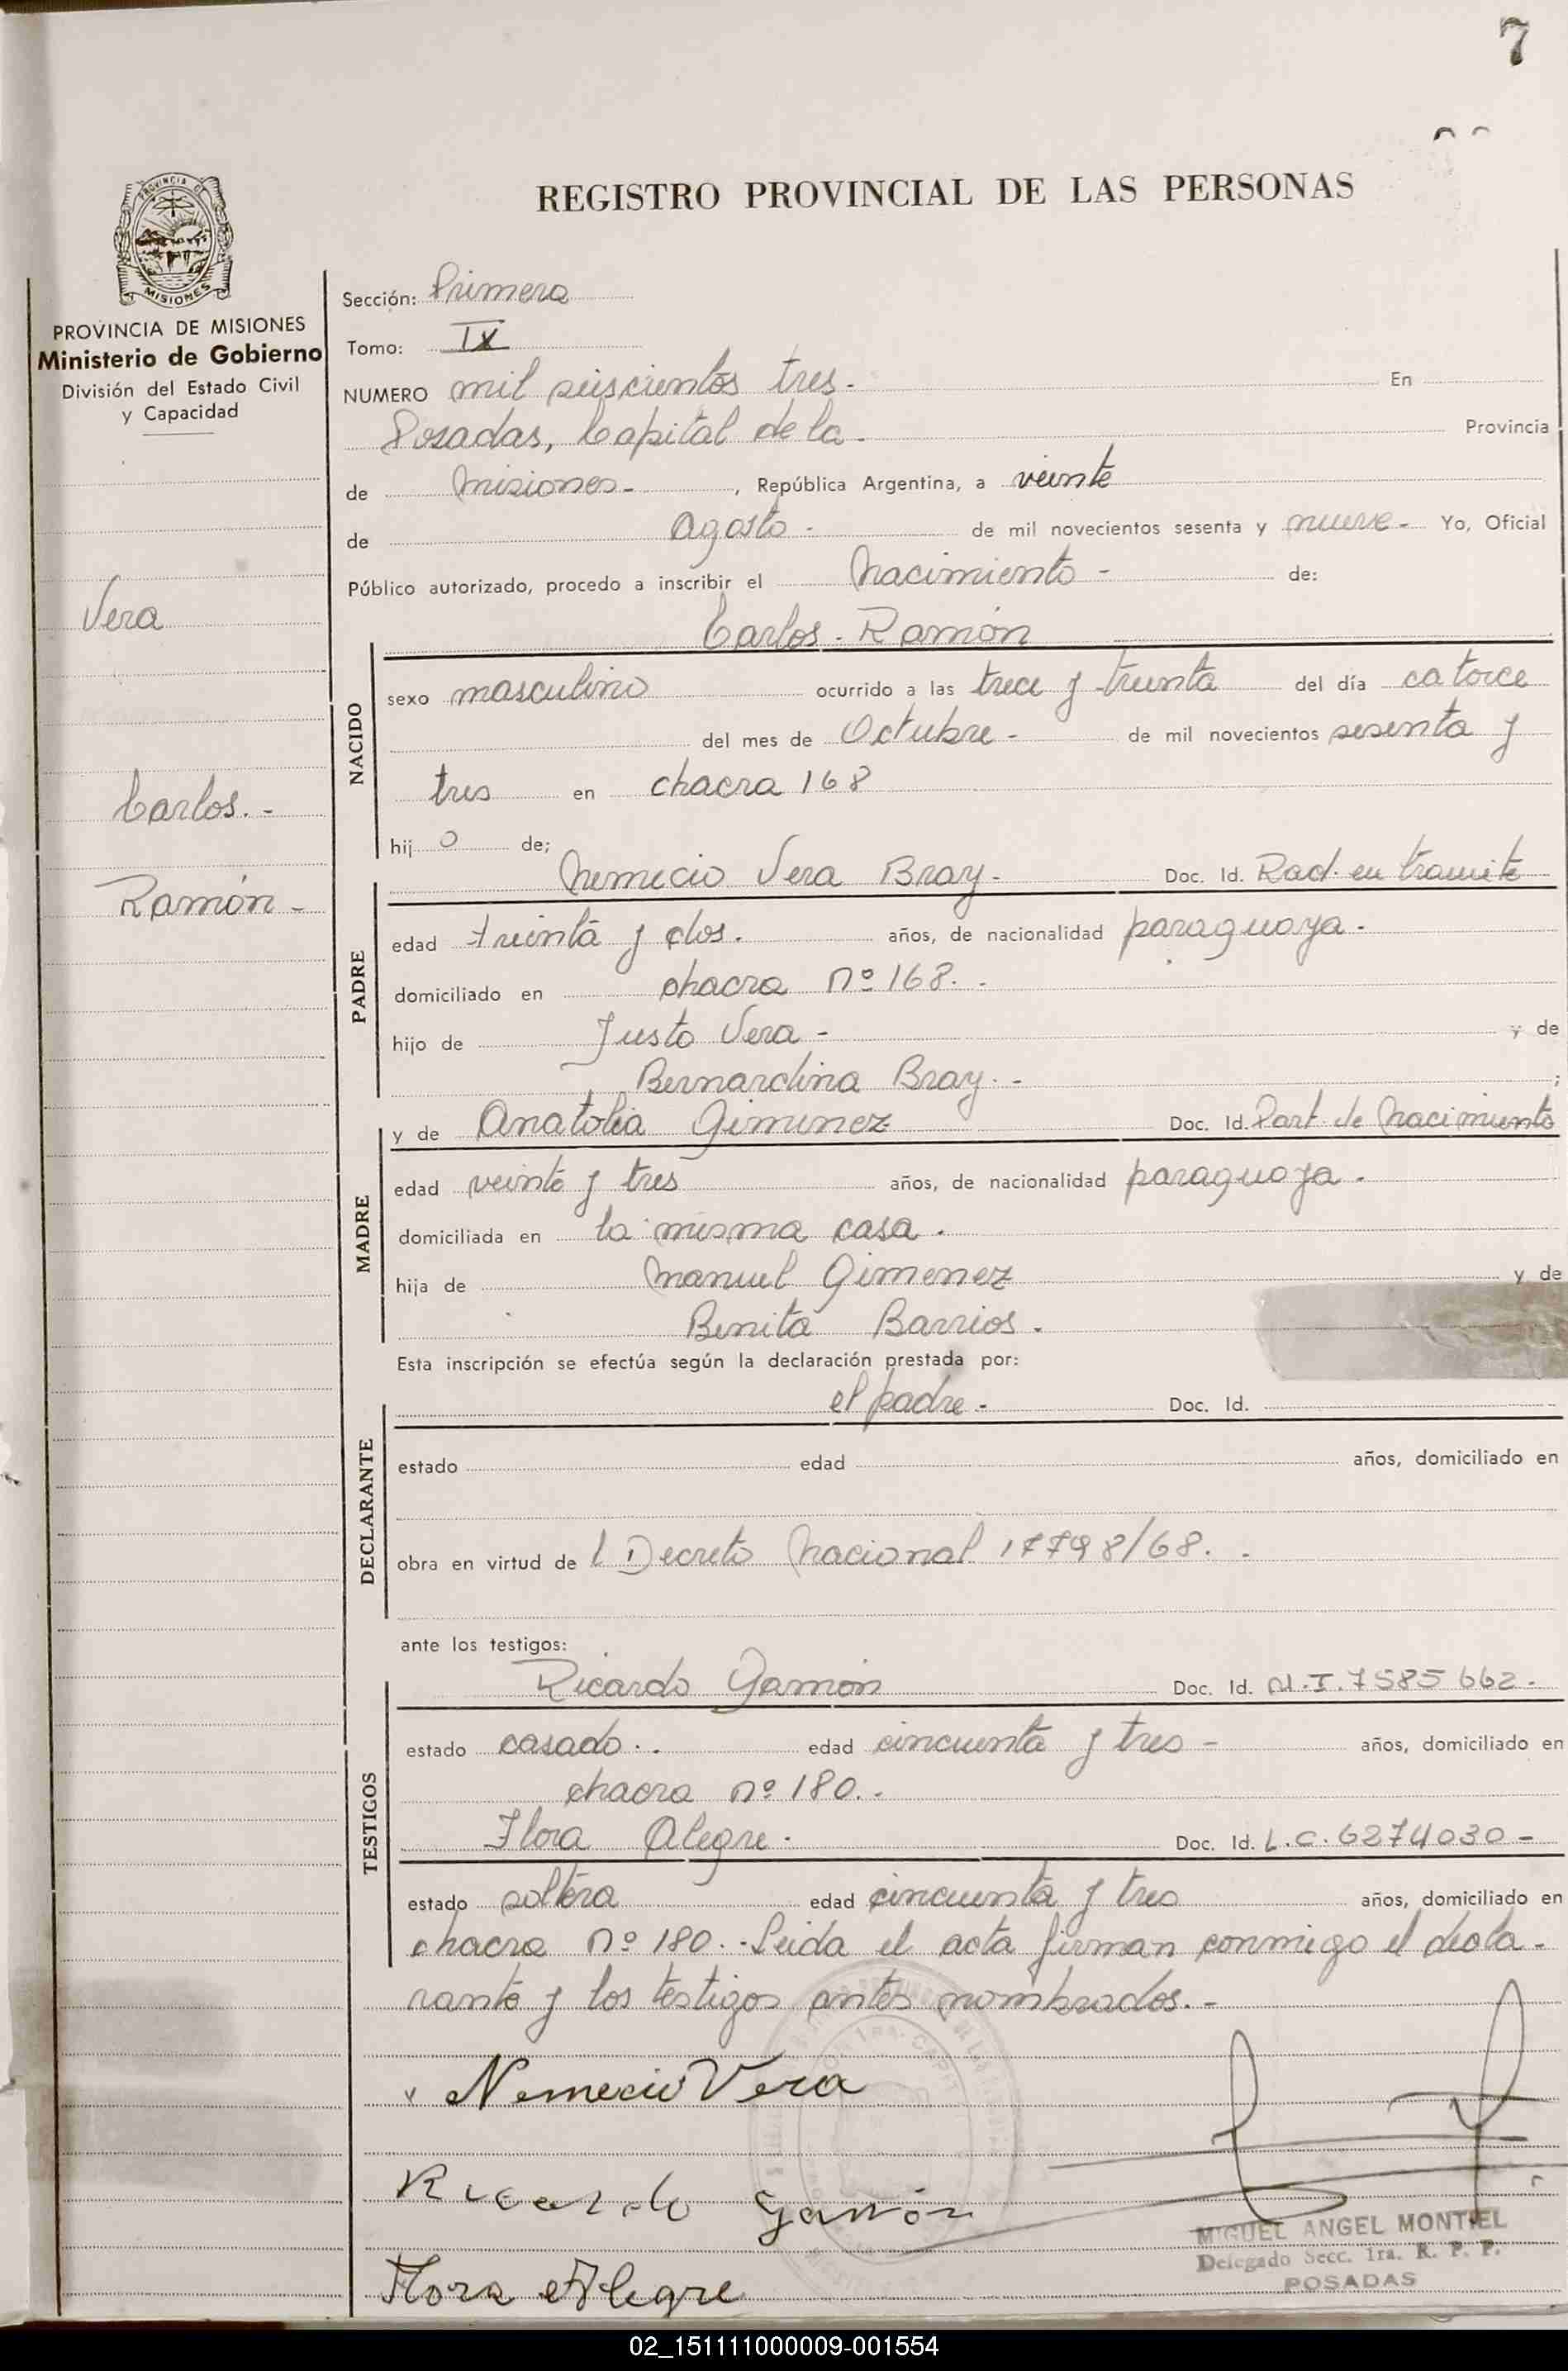 7
REGISTRO PROVINCIAL DE LAS PERSONAS
PROVINCIA DE
MISIONES
PROVINCIA DE MISIONES
Ministerio de Gobierno
División del Estado Civil
y Capacidad
Vera
Carlos.-
Ramón-
Sección: Primera
Tomo: IX
NUMERO mil seiscientos tres.- En
Posadas, Capital de la.- Provincia
de Misiones-, República Argentina, a veinte
de Agosto- de mil novecientos sesenta y nueve- Yo, Oficial
Público autorizado, procedo a inscribir el Nacimiento- de:
Carlos-Ramón
NACIDO
sexo masculino ocurrido a las trece y treinta del día catorce
del mes de Octubre- de mil novecientos sesenta y
tres en chacra 168
hijo de;
Nemecio Vera Bray- Doc. Id. Rad. en tramite
PADRE
edad treinta y dos. años, de nacionalidad paraguaya.-
domiciliado en chacra nº 168.-
hijo de Justo Vera- y de
Bernardina Bray.- ;
y de Anatolia Gimenez Doc. Id. Part. de Nacimiento
MADRE
edad veinte y tres años, de nacionalidad paraguaya.
domiciliada en la misma casa.
hija de Manuel Gimenez y de
Benita Barrios.
Esta inscripción se efectúa según la declaración prestada por:
el padre- Doc. Id.
DECLARANTE
estado edad años, domiciliado en
obra en virtud de l Decreto Nacional 17798/68.-
ante los testigos:
Ricardo Gamón Doc. Id. M.I. 7585662.-
TESTIGOS
estado casado.. edad cincuenta y tres- años, domiciliado en
chacra nº 180..
Flora Alegre- Doc. Id. L.C. 6274030-
estado soltera edad cincuenta y tres años, domiciliado en
chacra nº 180.-Leida el acta firman conmigo el decla-
rante y los testigos antes nombrados.-
x Nemecio Vera
Ricardo Gamón
Flora Alegre
MIGUEL ANGEL MONTIEL
Delegado Secc. 1ra. R. P. P.
POSADAS
02_151111000009-001554